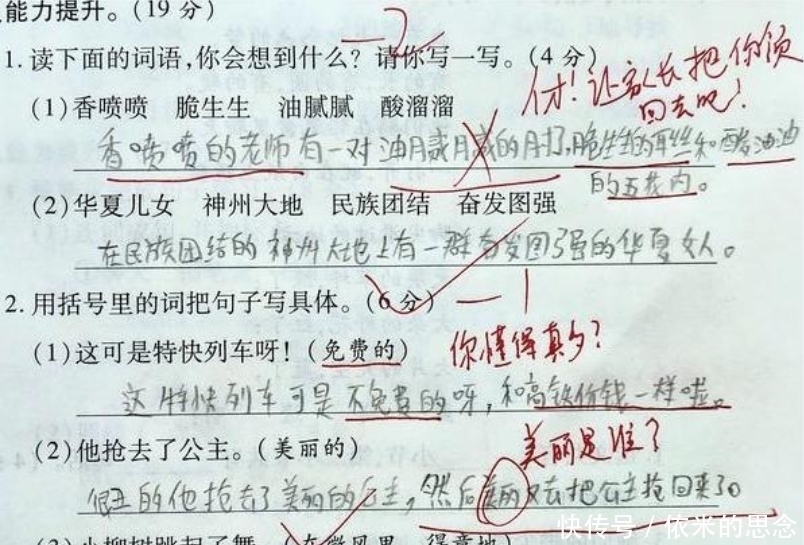 能力提升。(19 分)
-2
1. 读下面的词语,你会想到什么？请你写一写。(4 分)
(1)香喷喷 脆生生 油腻腻 酸溜溜
讨！让家长把你领回去吧！
香喷喷的老师有一对油腻腻的肘子,脆生生的耳丝和酸油油
的五花肉。
(2)华夏儿女 神州大地 民族团结 奋发图强
在民族团结的神州大地上有一群奋发图强的华夏女人。
2. 用括号里的词把句子写具体。(6 分) -1
(1)这可是特快列车呀！(免费的) 你懂得真多？
这特快列车可是不免费的呀，和高铁价钱一样啦。
(2)他抢去了公主。(美丽的) 美丽是谁？
的他抢去了美丽的公主，然后美丽又去把公主抢回来了。
(3)小柳树跳起了舞。(在微风里 得意地)
快传号 / 依米的思念